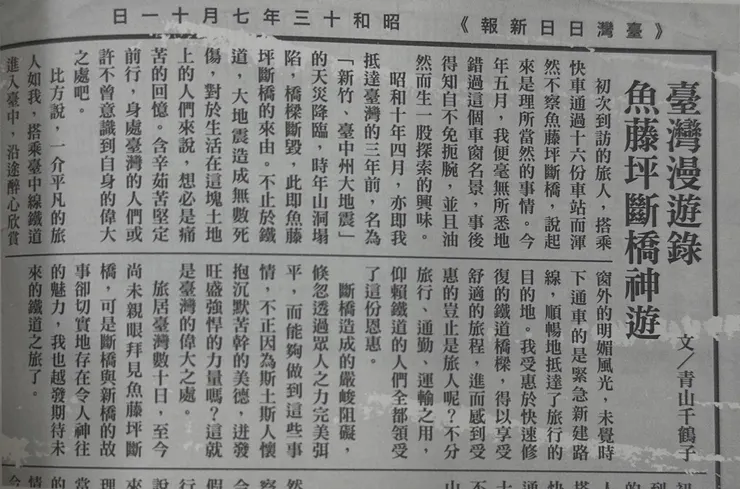 《臺灣日日新報》 昭和十三年七月十一日
臺灣漫遊錄
魚藤坪斷橋神遊
文／青山千鶴子
初次到訪的旅人，搭乘
快車通過十六份車站而渾
然不察魚藤坪斷橋，說起
來是理所當然的事情。今
年五月，我便毫無所悉地
錯過這個車窗名景，事後
得知自不免扼腕，並且油
然而生一股探索的興味。
昭和十年四月，亦即我
抵達臺灣的三年前，名為
「新竹、臺中州大地震」
的天災降臨，時年山洞塌
陷，橋樑斷毀，此即魚藤
坪斷橋的來由。不止於鐵
道，大地震造成無數死
傷，對於生活在這塊土地
上的人們來說，想必是痛
苦的回憶。含辛茹苦堅定
前行，身處臺灣的人們或
許不曾意識到自身的偉大
之處吧。
比方說，一介平凡的旅
人如我，搭乘臺中線鐵道
進入臺中，沿途醉心欣賞
窗外的明媚風光，未覺時
下通車的是緊急新建路
線，順暢地抵達了旅行的
目的地。我受惠於快速修
復的鐵道橋樑，得以享受
舒適的旅程，進而感到受
惠的豈止是旅人呢？不分
旅行、通勤、運輸之用，
仰賴鐵道的人們全都領受
了這份恩惠。
斷橋造成的嚴峻阻礙，
倏忽透過眾人之力完美弭
平，而能夠做到這些事
情，不正因為斯土斯人懷
抱沉默苦幹的美德，迸發
旺盛強悍的力量嗎？這就
是臺灣的偉大之處。
旅居臺灣數十日，至今
尚未親眼拜見魚藤坪斷
橋，可是斷橋與新橋的故
事卻切實地存在令人神往
的魅力，我也越發期待未
來的鐵道之旅了。